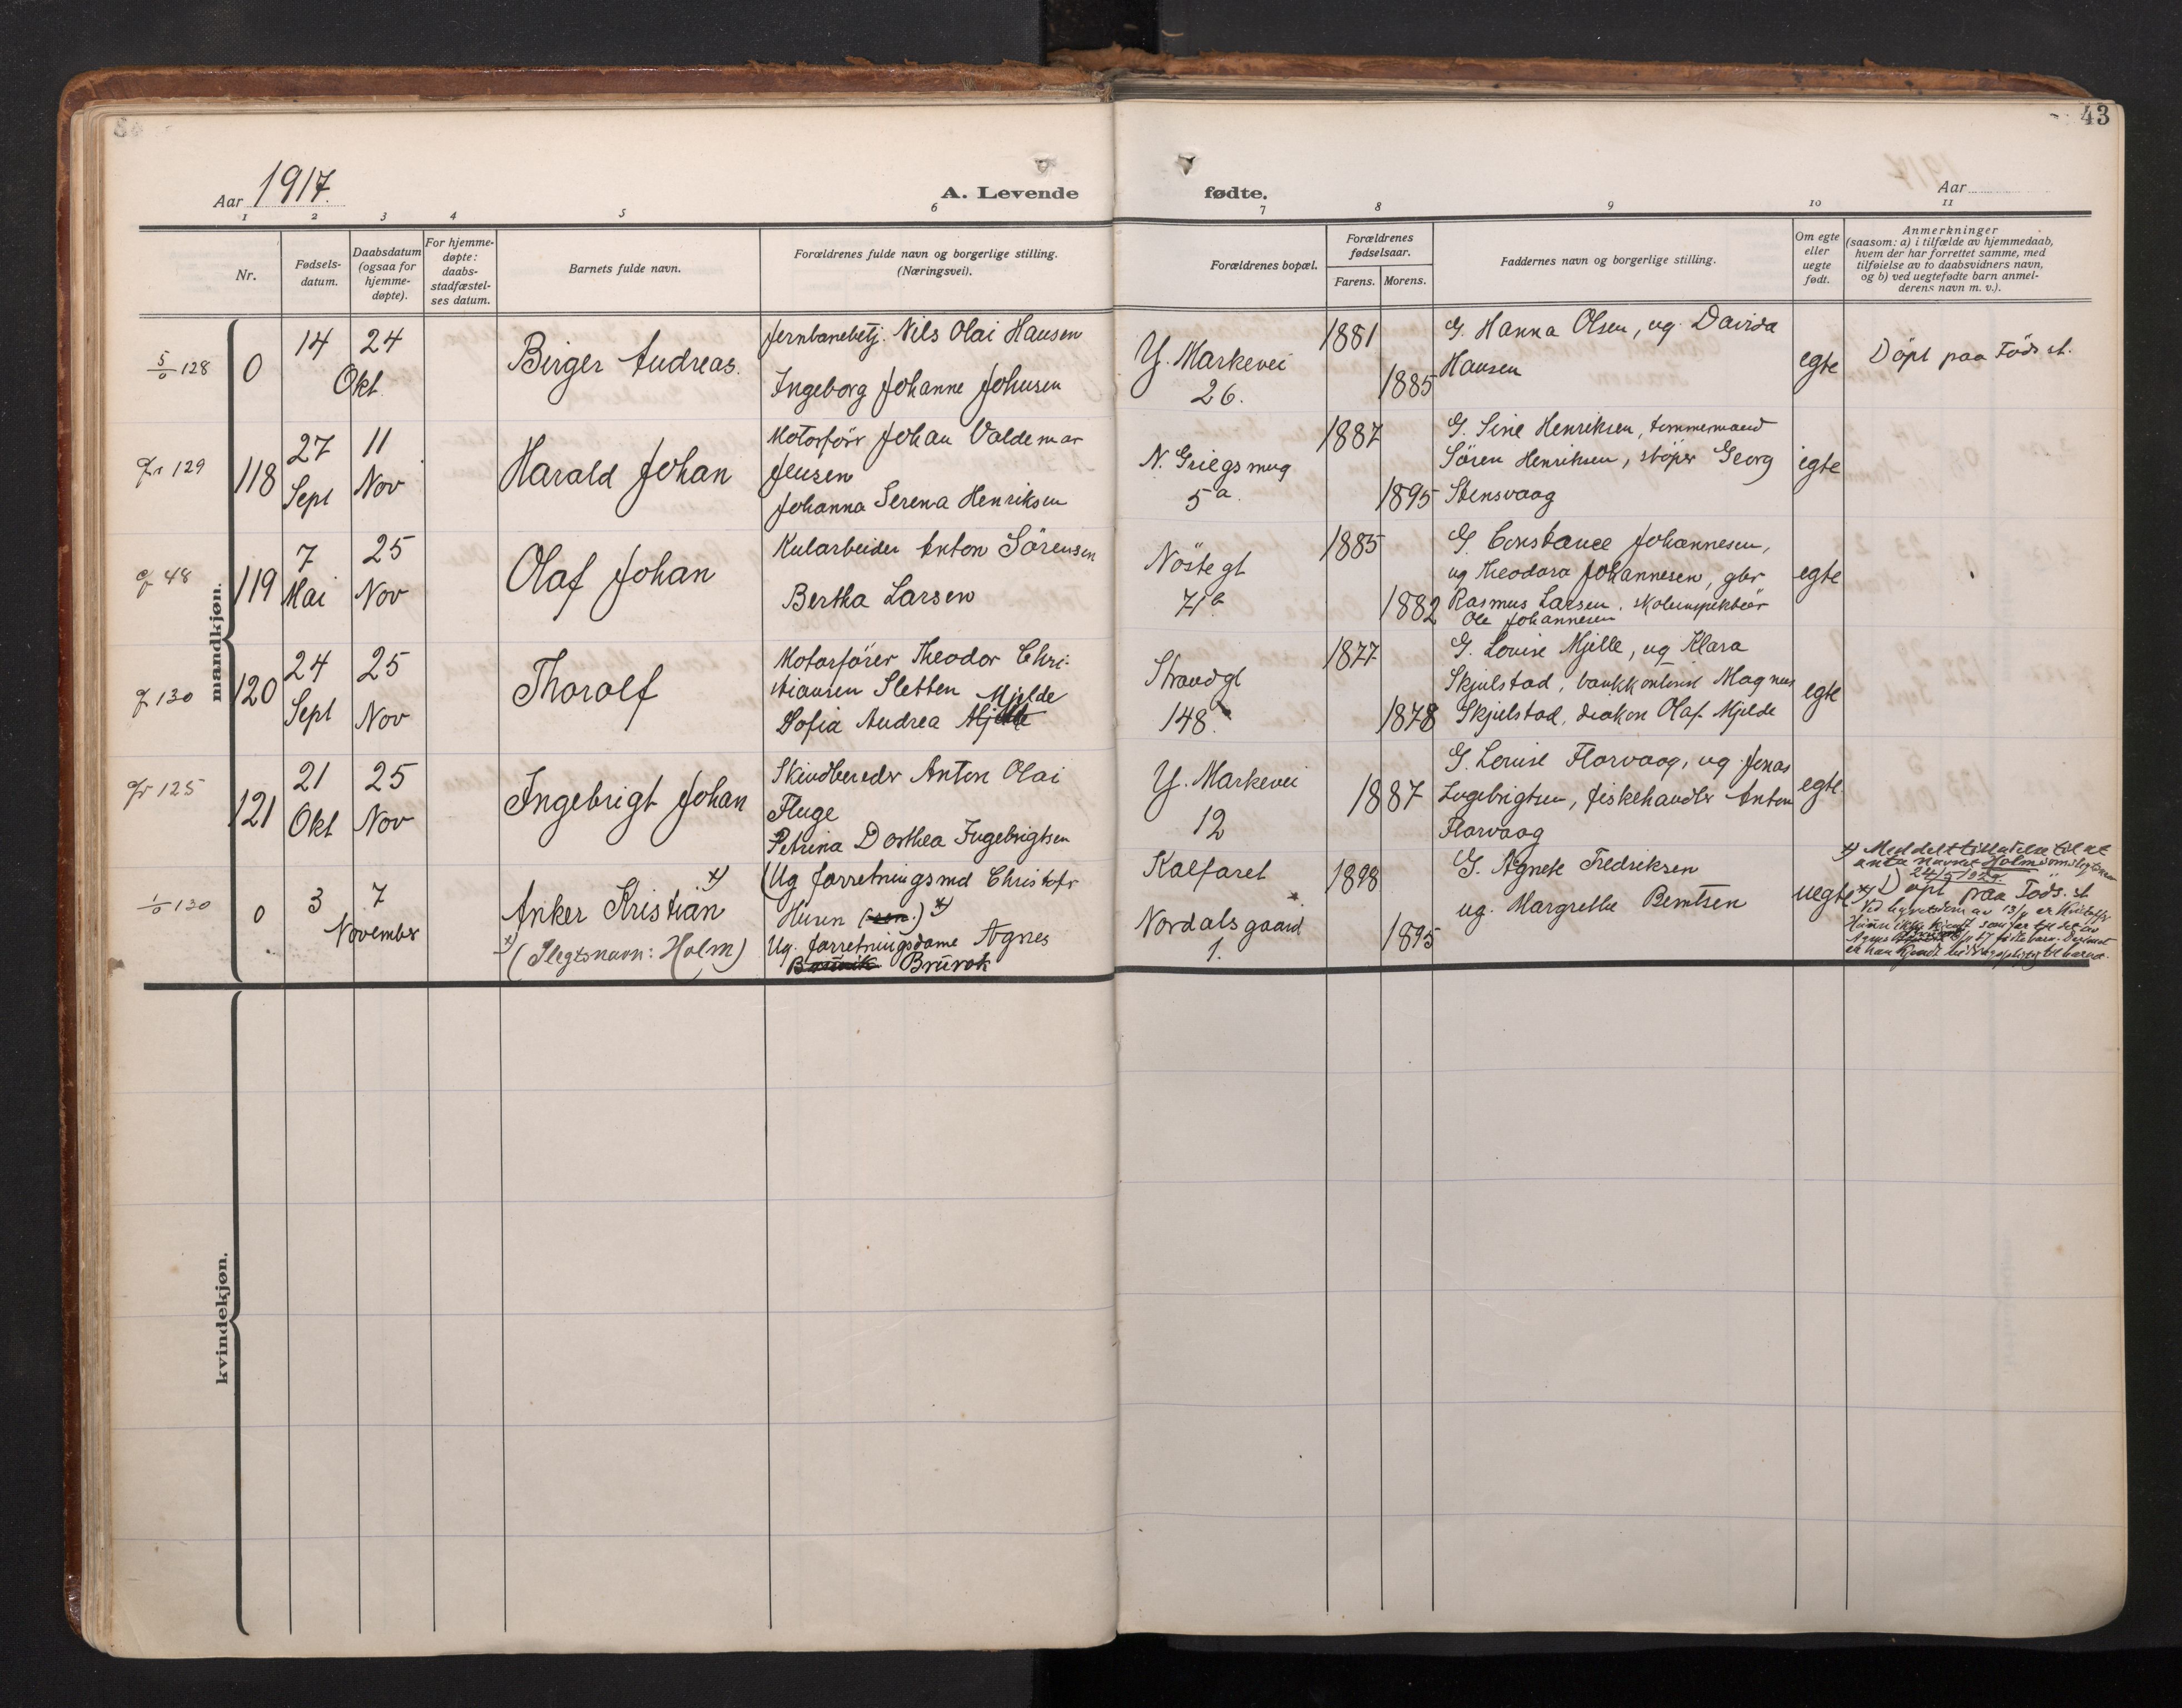 43
Aar 1917.
A. Levende fødte.
Aar
1 2 3 4 5 6 7 8 9 10 11
Nr.
Fødsels-
datum.
Daabsdatum
(ogsaa for
hjemme-
døpte).
For hjemme-
døpte:
daabs-
stadfæstel-
ses datum.
Barnets fulde navn.
Forældrenes fulde navn og borgerlige stilling.
(Næringsvei).
Forældrenes bopæl.
Forældrenes
fødselsaar.
Farens. Morens.
Faddernes navn og borgerlige stilling.
Om egte
eller
uegte
født.
Anmerkninger
(saasom: a) i tilfælde av hjemmedaab,
hvem der har forrettet samme, med
tilføielse av to daabsvidners navn,
og b) ved uegtefødte barn anmel-
derens navn m. v.).
mandkjøn.
5/0 128
0
14 24
Okt.
Birger Andreas.
Jernbanebetj. Nils Olai Hansen
Ingeborg Johanne Johnsen
Y. Markevei
26.
1881
1885
G. Hanna Olsen, ug. Davida
Hansen
egte
Döpt paa Föds st.
129
118
27 11
Sept Nov
Harald Johan
Motorförr Johan Valdemar
Jensen
Johanna Serena Henriksen
N. Griegsmug
5a.
1887
1895
G. Sine Henriksen, tømmermand
Sören Henriksen, stöper Georg
Stensvaag
egte
48
119
7 25
Mai Nov
Olaf Johan
Kularbeider Anton Sörensen
Bertha Larsen
Nöstegt
71a
1885
1882
G. Constance Johannesen,
ug Theodora Johannesen, gbr
Rasmus Larsen. skoleinspektör
Ole Johannesen
egte
130
120
24 25
Sept Nov
Thorolf
Motorförer Theodor Chri-
stiansen Sletten
Mjelde
Sofia Andrea
Strandgt
148.
1877
1878
G. Louise Mjelle, ug Klara
Skjelstad, bankkontorist Magnus
Skjelstad, diakon Olaf Mjelde
egte
125
121
21 25
Okt Nov
Ingebrigt Johan
Skindbereder Anton Olai
Fluge
Petrina Dorthea Ingebrigtsen
Y. Markevei
12
1887
G. Louise Florvaag, ug Jonas
Ingebrigtsen, fiskehandler Anton
Florvaag
egte
1/0 130
0
3 7
November
Anker Kristian x)
x) (Slegtsnavn: Holm)
(Ug forretningsmd Christofr
Husen (sen.) x)
Ug. forretningsdame Agnes
Brurok
Kalfaret
Nordalsgaard
1.
1898
1895
G. Agnete Fredriksen
ug. Margrethe Berntsen
uegte
x) Meddelt tilladelse til at
anta navnet Holm
x) Döpt paa Föds. st
kvindekjøn.